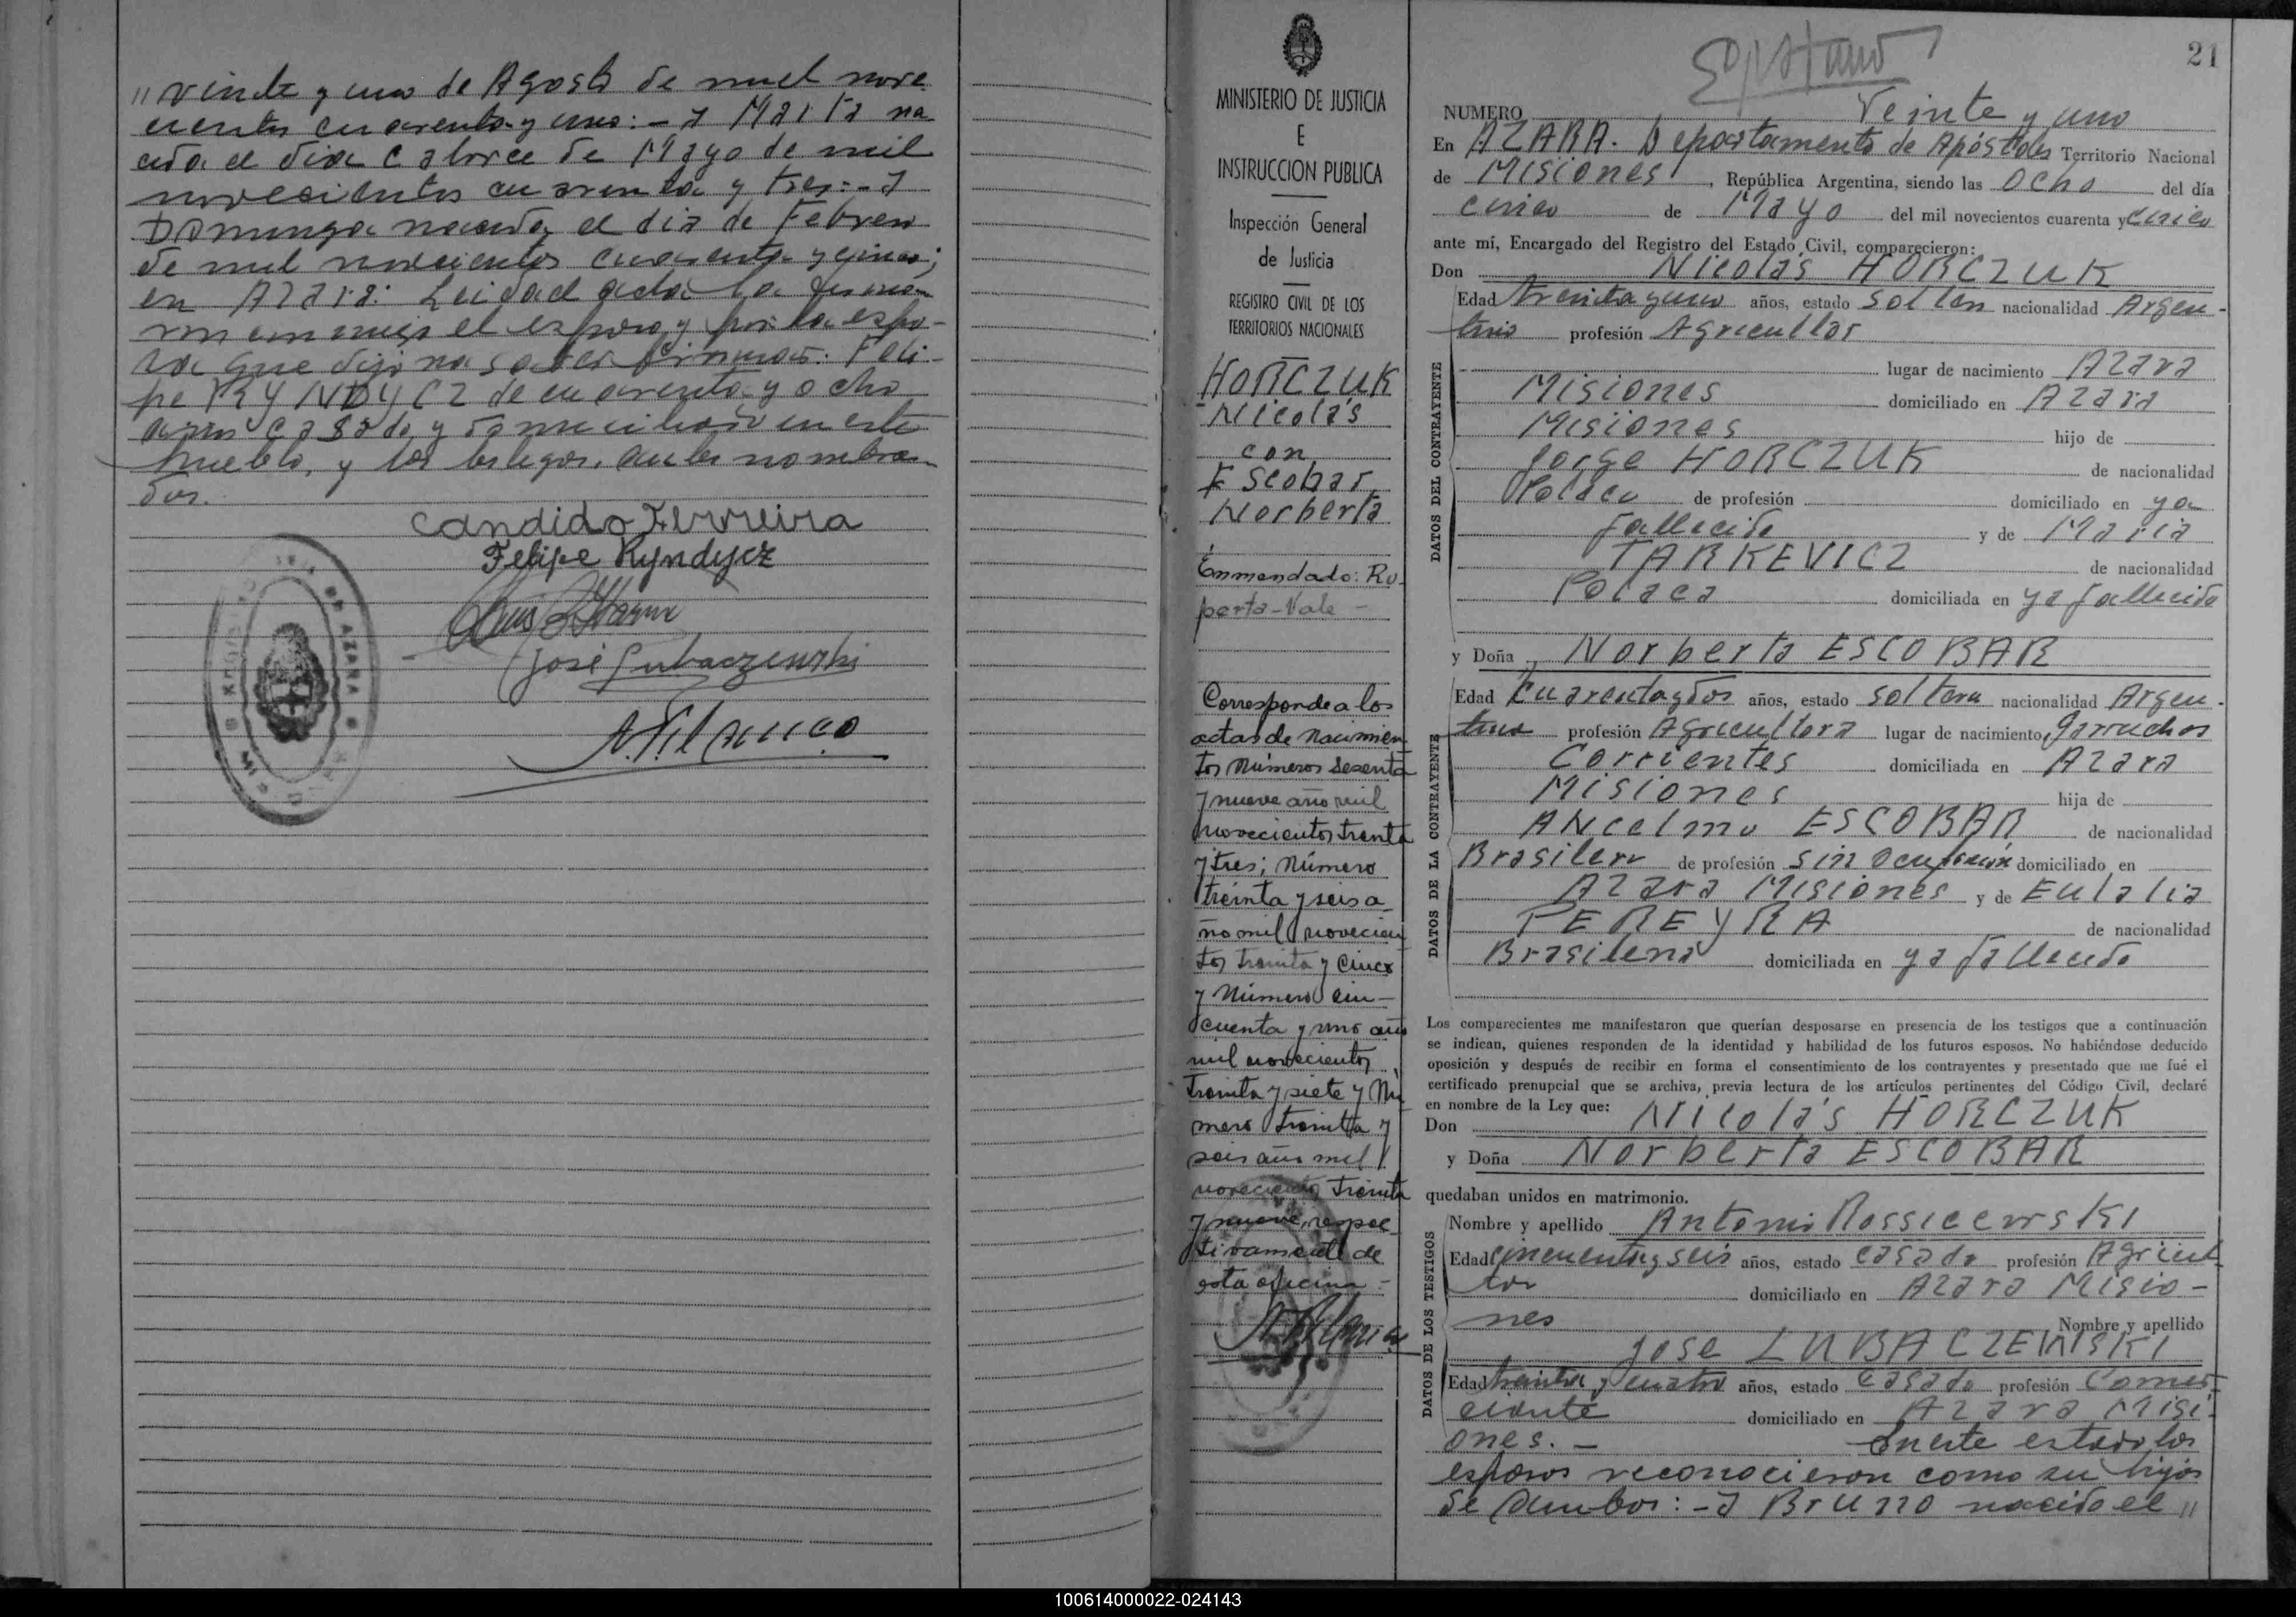 " veinte y uno de Agosto de mil nove
cientos cuarenta y uno: - a Marta na
cida el dia catorce de Mayo de mil
novecientos cuarenta y tres: - a
Dominga nacida el dia de Febrero
de mil novecientos cuarenta y cinco;
en Azara: Leida el acta la firma
ron conmigo el esposo y por la espo-
sa que dijo no saber firmar: Feli-
pe RYNDYCZ de cuarenta y ocho
años casado y domiciliado en este
pueblo, y los testigos antes nombra
dos.
Candido Ferreira
Felipe Ryndycz
José Lubaczewski
MINISTERIO DE JUSTICIA
E
INSTRUCCION PUBLICA
Inspección General
de Justicia
REGISTRO CIVIL DE LOS
TERRITORIOS NACIONALES
HORCZUK
Nicolás
con
Escobar
Norberta
Enmendado: Ru-
perta - Vale -
Corresponde a los
actas de nacimien
tos números sesenta
y nueve año mil
novecientos treinta
y tres; número
treinta y seis a
ño mil novecien
tos treinta y cinco
y número cin-
cuenta y uno año
mil novecientos
treinta y siete y nú
mero treinta y
seis año mil
novecientos treinta
y nueve, respec
tivamente de
esta oficina -
21
NUMERO Veinte y uno
En AZARA. Departamento de Apóstoles Territorio Nacional
de Misiones, República Argentina, siendo las Ocho del día
cinco de Mayo del mil novecientos cuarenta y cinco
ante mí, Encargado del Registro del Estado Civil, comparecieron:
Don Nicolás HORCZUK
DATOS DEL CONTRAYENTE
Edad treinta y uno años, estado soltero nacionalidad Argen-
tino profesión Agricultor
lugar de nacimiento Azara
Misiones domiciliado en Azara
Misiones hijo de
Jorge HORCZUK de nacionalidad
Polaco de profesión domiciliado en ya
fallecido y de Maria
TARKEVICZ de nacionalidad
Polaca domiciliada en ya fallecida
y Doña Norberta ESCOBAR
DATOS DE LA CONTRAYENTE
Edad Cuarenta y dos años, estado soltera nacionalidad Argen-
tina profesión Agricultora lugar de nacimiento Garruchos
Corrientes domiciliada en Azara
Misiones hija de
Ancelmo ESCOBAR de nacionalidad
Brasilero de profesión sin ocupación domiciliado en
Azara Misiones y de Eulalia
PEREYRA de nacionalidad
Brasilena domiciliada en ya fallecida
Los comparecientes me manifestaron que querían desposarse en presencia de los testigos que a continuación
se indican, quienes responden de la identidad y habilidad de los futuros esposos. No habiéndose deducido
oposición y después de recibir en forma el consentimiento de los contrayentes y presentado que me fué el
certificado prenupcial que se archiva, previa lectura de los artículos pertinentes del Código Civil, declaré
en nombre de la Ley que:
Don Nicolás HORCZUK
y Doña Norberta ESCOBAR
quedaban unidos en matrimonio.
DATOS DE LOS TESTIGOS
Nombre y apellido Antonio Rossicewski
Edad cincuenta y seis años, estado casado profesión Agricul
tor domiciliado en Azara Misio-
nes Nombre y apellido
Jose LUBACZEWSKI
Edad treinta y cuatro años, estado casado profesión Comer-
ciante domiciliado en Azara Misi-
ones. - En este estado los
esposos reconocieron como su hijos
de ambos: - a Bruno nacido el "
100614000022-024143